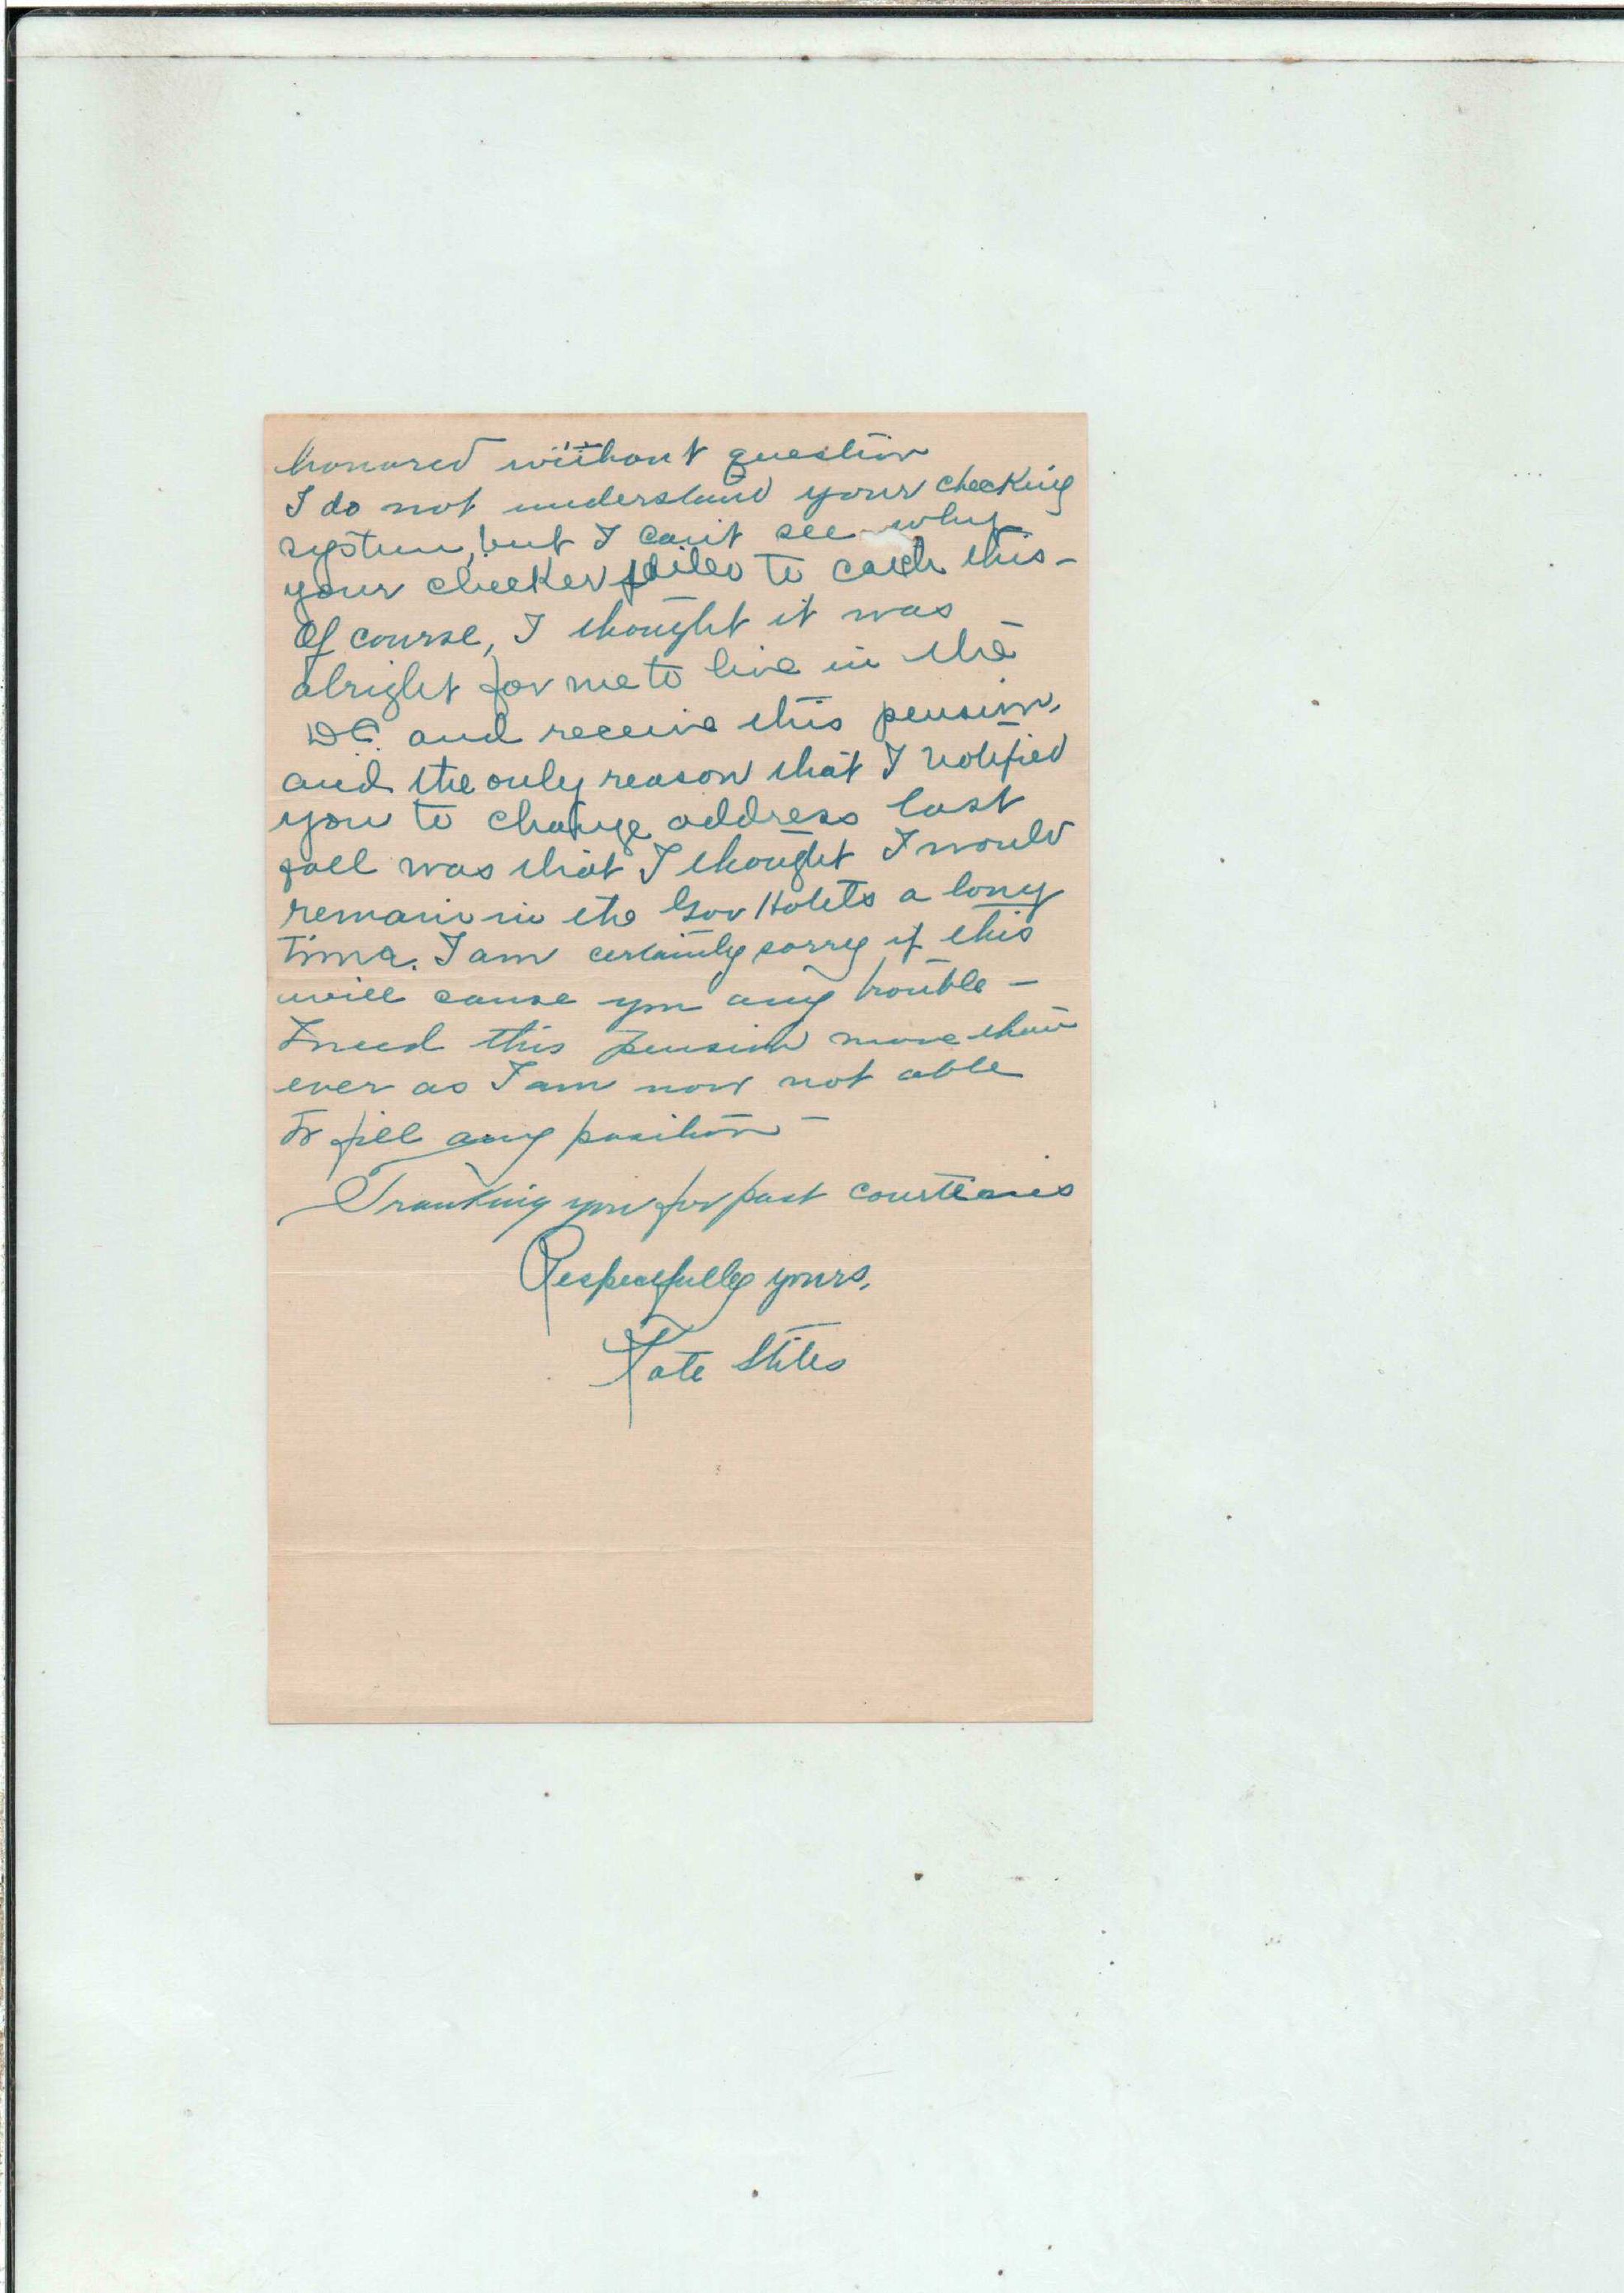 honored without question
I do not understand your checking
system, but I can't see why
your checker failed to catch this-
Of course, I thought it was
alright for me to live in the
D.C. and receive this pension,
and the only reason that I notified
you to change address last
fall was that I thought I would
remain in the Gov Hotels a long
time. I am certainly sorry if this
will cause you any trouble -
I need this pension more than
ever as I am now not able
to fill any position -
Thanking you for past courtesies
Respectfully yours,
Tate Stiles